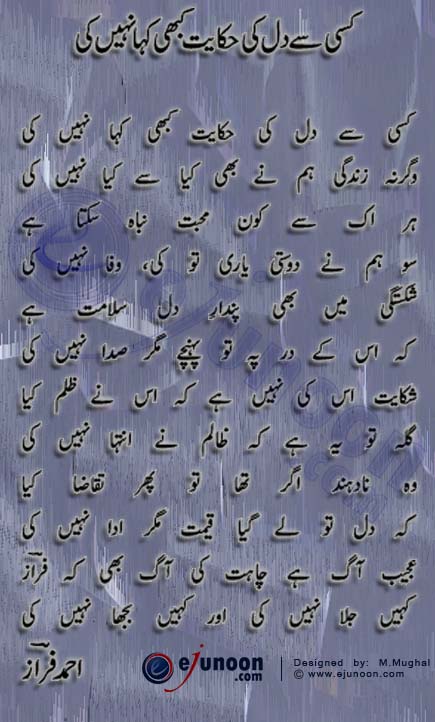 کسی سے دل کی حکایت کبھی کہا نہیں کی
کسی سے دل کی حکایت کبھی کہا نہیں کی
وگرنہ زندگی ہم نے بھی کیا سے کیا نہیں کی
ہر اک سے کون محبت نباہ سکتا ہے
سو ہم نے دوستی یاری تو کی، وفا نہیں کی
شکستگی میں بھی پندار دل سلامت ہے
کہ اس کے در پہ تو پہنچے مگر صدا نہیں کی
شکایت اس کی نہیں ہے کہ اس نے ظلم کیا
گلہ تو یہ ہے کہ ظالم نے انتہا نہیں کی
وہ نادہند اگر تھا تو پھر تقاضا کیا
کہ دل تو لے گیا قیمت مگر ادا نہیں کی
عجیب آگ ہے چاہت کی آگ بھی کہ فراز
کہیں جلا نہیں کی اور کہیں بجھا نہیں کی
احمد فراز
ejunoon
.com
Designed by: M.Mughal
© www.ejunoon.com
ejunoon
.com